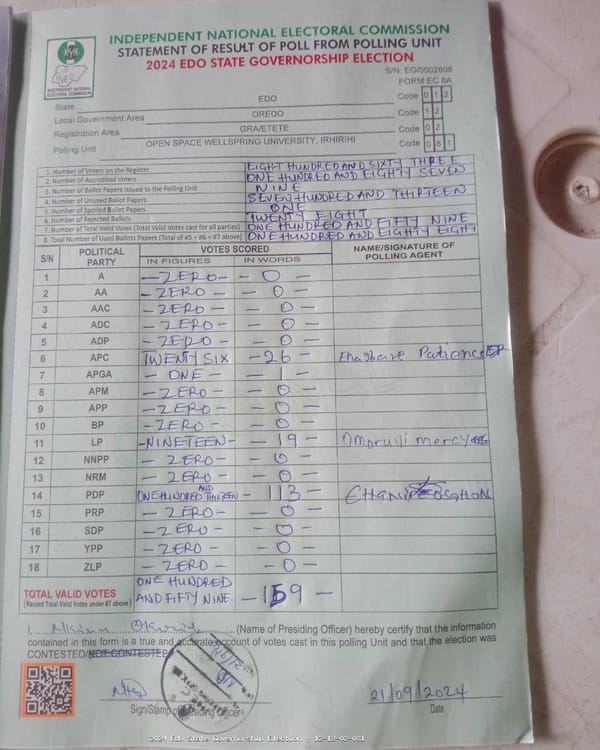 INDEPENDENT NATIONAL ELECTORAL COMMISSION
STATEMENT OF RESULT OF POLL FROM POLLING UNIT
2024 EDO STATE GOVERNORSHIP ELECTION
INDEPENDENT NATIONAL
ELECTORAL COMMISSION
S/N: EG/0002808
FORM EC 8A
State EDO Code 0 1 2
Local Government Area OREDO Code 1 2
Registration Area GRA/ETETE Code 0 2
Polling Unit OPEN SPACE WELLSPRING UNIVERSITY, IRHIRIHI Code 0 8 1
1. Number of Voters on the Register EIGHT HUNDRED AND SIXTY THREE
2. Number of Accredited Voters ONE HUNDRED AND EIGHTY SEVEN
3. Number of Ballot Papers issued to the Polling Unit NINE
4. Number of Unused Ballot Papers SEVEN HUNDRED AND THIRTEEN
5. Number of Spoiled Ballot Papers ONE
6. Number of Rejected Ballots TWENTY EIGHT
7. Number of Total Valid Votes (Total Valid Votes cast for all parties) ONE HUNDRED AND FIFTY NINE
8. Total Number of Used Ballots Papers (Total of #5 + #6 + #7 above) ONE HUNDRED AND EIGHTY EIGHT
S/N POLITICAL PARTY VOTES SCORED NAME/SIGNATURE OF POLLING AGENT
IN FIGURES IN WORDS
1 A - ZERO - - 0 -
2 AA - ZERO - - 0 -
3 AAC - ZERO - - 0 -
4 ADC - ZERO - - 0 -
5 ADP - ZERO - - 0 -
6 APC TWENTY SIX - 26 - Patience
7 APGA - ONE - - 1 -
8 APM - ZERO - - 0 -
9 APP - ZERO - - 0 -
10 BP - ZERO - - 0 -
11 LP - NINETEEN - - 19 - mercy
12 NNPP - ZERO - - 0 -
13 NRM - ZERO - - 0 -
14 PDP ONE HUNDRED AND THIRTEEN - 113 -
15 PRP - ZERO - - 0 -
16 SDP - ZERO - - 0 -
17 YPP - ZERO - - 0 -
18 ZLP - ZERO - - 0 -
TOTAL VALID VOTES ONE HUNDRED
(Record Total Valid Votes under #7 above) AND FIFTY NINE. - 159 -
I, (Name of Presiding Officer) hereby certify that the information
contained in this form is a true and accurate account of votes cast in this polling Unit and that the election was
CONTESTED/NOT CONTESTED
21/09/2024
Sign/Stamp of Presiding Officer Date
2024 Edo State Governorship Election : 12-12-02-081